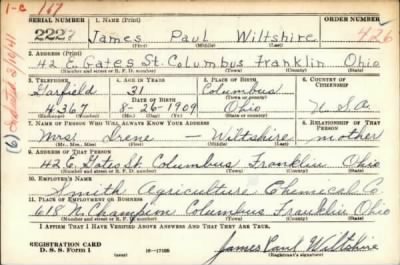 1-C 167
SERIAL NUMBER 1. NAME (Print) ORDER NUMBER
2227 James Paul Wiltshire 426
(First) (Middle) (Last)
2. ADDRESS (Print)
42 E. Gates St. Columbus Franklin Ohio
(Number and street or R. F. D. number) (Town) (County) (State)
3. TELEPHONE 4. AGE IN YEARS 5. PLACE OF BIRTH 6. COUNTRY OF CITIZENSHIP
Garfield 31 Columbus
DATE OF BIRTH
4367 8-26-1909 Ohio U.S.A.
(Exchange) (Number) (Mo.) (Day) (Yr.) (State or country)
7. NAME OF PERSON WHO WILL ALWAYS KNOW YOUR ADDRESS 8. RELATIONSHIP OF THAT PERSON
Mrs. Irene — Wiltshire mother
(Mr., Mrs., Miss) (First) (Middle) (Last)
9. ADDRESS OF THAT PERSON
42 E. Gates St Columbus Franklin Ohio
(Number and street or R. F. D. number) (Town) (County) (State)
10. EMPLOYER'S NAME
Smith Agriculture Chemical Co
11. PLACE OF EMPLOYMENT OR BUSINESS
618 N. Champion Columbus Franklin Ohio
(Number and street or R. F. D. number) (Town) (County) (State)
I AFFIRM THAT I HAVE VERIFIED ABOVE ANSWERS AND THAT THEY ARE TRUE.
REGISTRATION CARD
D. S. S. Form 1 16—17105 James Paul Wiltshire
(Registrant's signature)